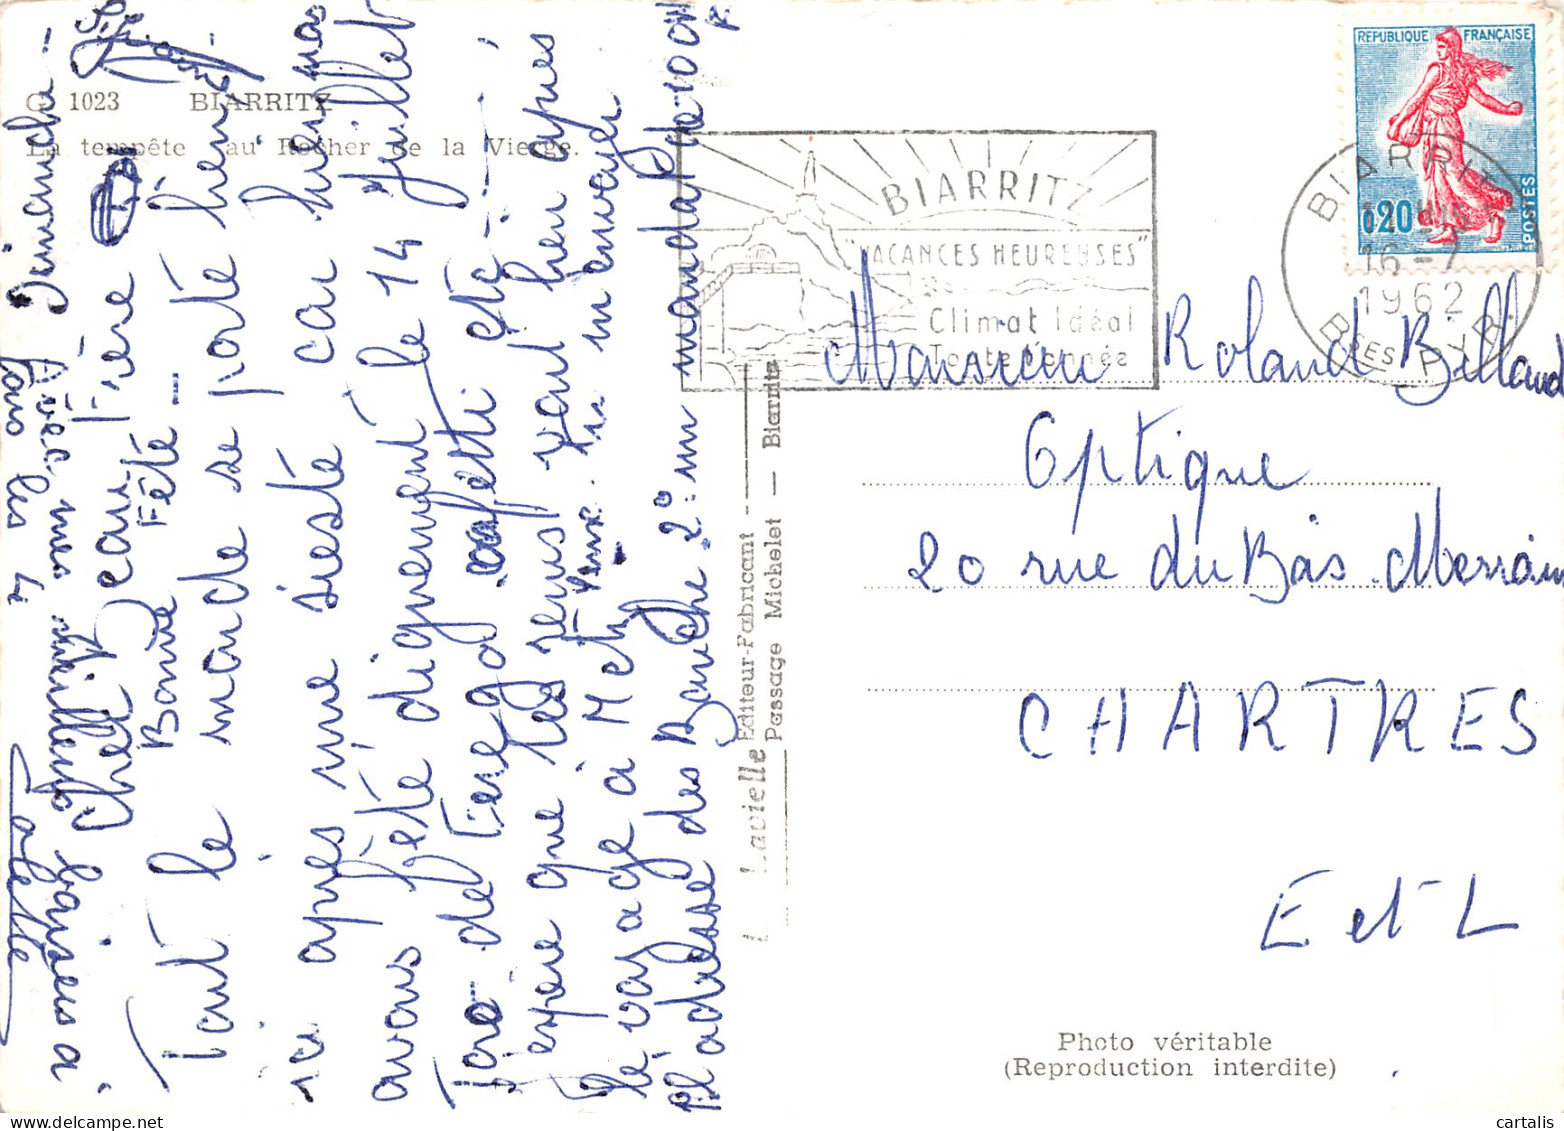 1023 BIARRITZ
La tempête au Rocher de la Vierge.
Dimanche -
Cher Beau Frère
Bonne Fête -
Tout le monde se porte bien
ici après une sieste car hier nous
avons fêté dignement le 14 Juillet
Toro de Fuego confetti etc
J'espère que tes reins vont bien après
le voyage à Metz
Pl adresse des Banche 2° un mandat de 100
Avec mes meilleurs baisers à
tous les 4
Colette
Lavielle Editeur-Fabricant
Passage Michelet — Biarritz
BIARRITZ
"VACANCES HEUREUSES"
Climat Idéal
Toute l'année
REPUBLIQUE FRANÇAISE
0,20
POSTES
BIARRITZ
16-7
1962
Bses PYR.
Monsieur Roland Billaud
Optique
20 rue du Bois Merrain
CHARTRES
E et L
Photo véritable
(Reproduction interdite)
cartalis